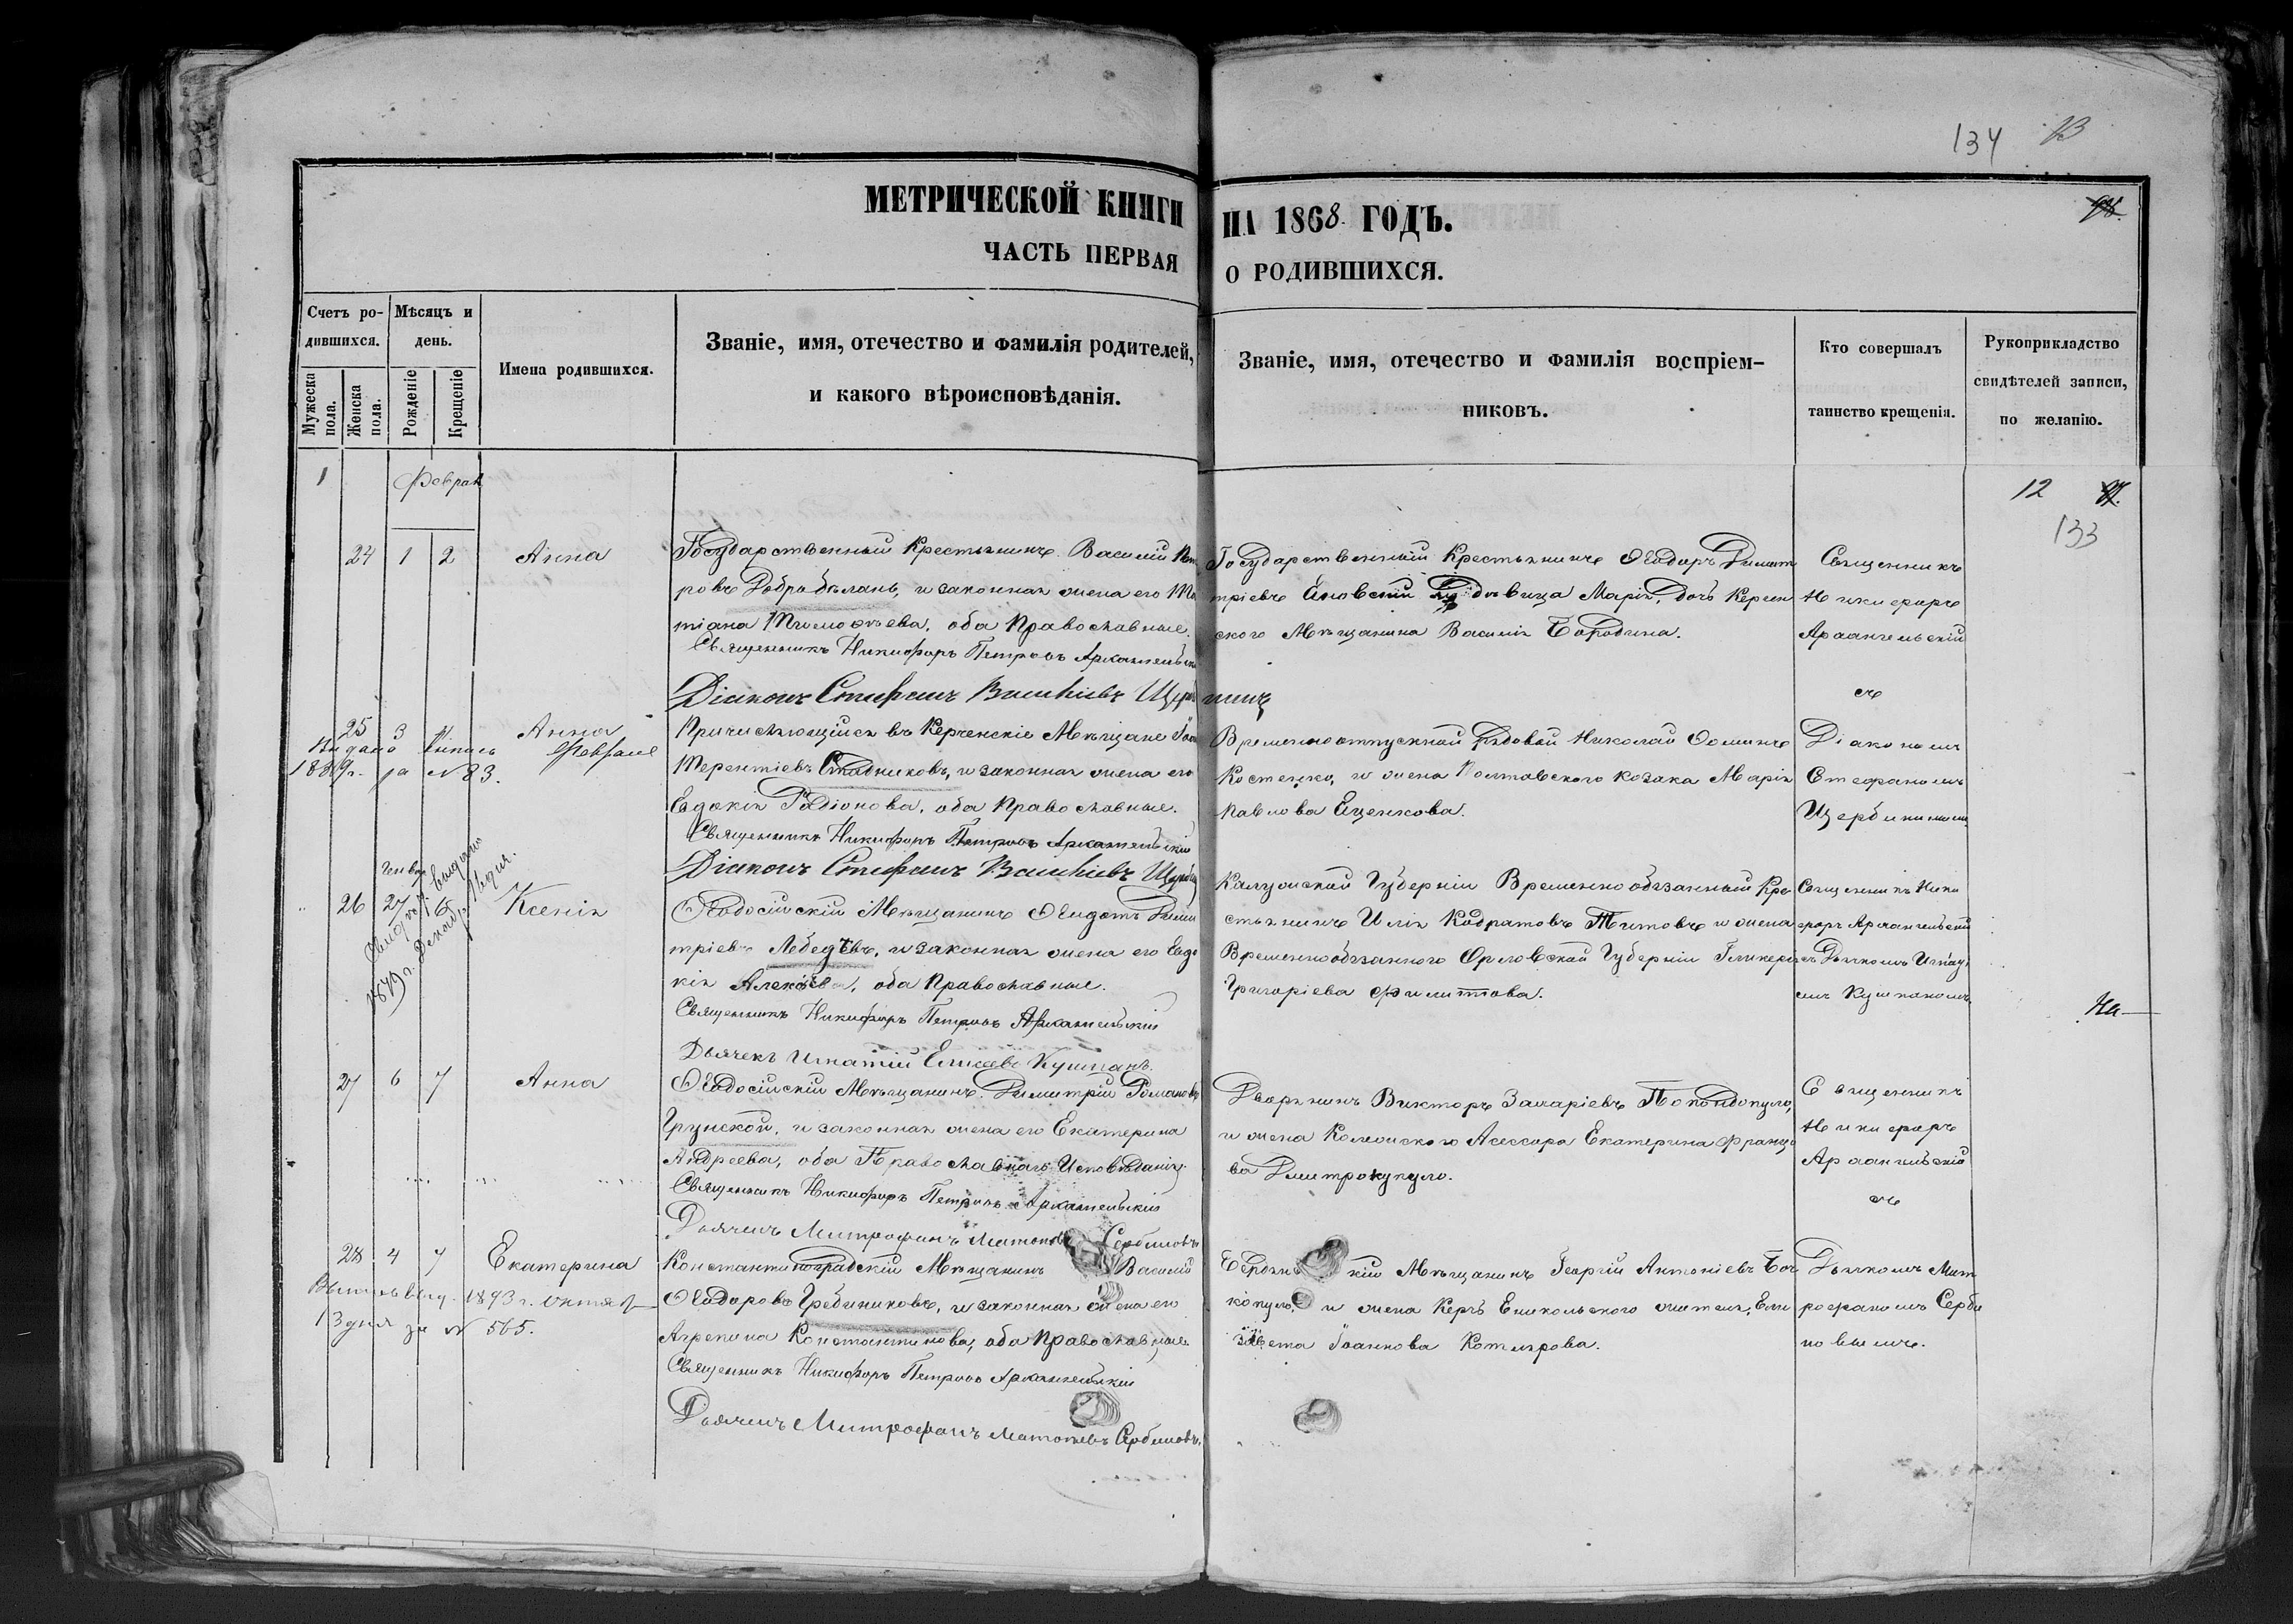 134 13
МЕТРИЧЕСКОЙ КНИГИ НА 1868 ГОДЪ.
ЧАСТЬ ПЕРВАЯ О РОДИВШИХСЯ.
Счетъ родившихся.
Мужеска пола.
Женска пола.
Мѣсяцъ и день.
Рожденіе
Крещеніе
Имена родившихся.
Званіе, имя, отечество и фамилія родителей,
и какого вѣроисповѣданія.
Званіе, имя, отечество и фамилія воспріем-
никовъ.
Кто совершалъ
таинство крещенія.
Рукоприкладство
свидѣтелей записи,
по желанію.
1 Феврал
12
133
24 1 2 Анна
Государственный Крестьянинъ Василій Пет
ровъ Добробѣланъ, и законная жена его Та
тіана Тимофѣева, оба Православные.
Священникъ Никифоръ Петровъ Архангельскій
Діаконъ Стефанъ Васильевъ Щербининъ
Государственный Крестьянинъ Ѳеодоръ Димит
тріевъ Яновскій и дѣвица Марія, дочь Керчен
ского Мѣщанина Василія Бородина.
Священникъ
Никифоръ
Архангельскій
съ
25 3 4 Анна
Выдано выпись Февраля
188 г. за №83.
Причисляющійся въ Керченскіе Мѣщане
Терентіевъ Стадниковъ, и законная жена его
Евдокія Родіонова, оба Православные.
Священникъ Никифоръ Петровъ Архангельскій
Діаконъ Стефанъ Васильевъ
Временноотпускной рядовой Николай Ѳоминъ
Костенко, и жена Полтавского козака Марія
Павлова Ященкова.
Діакономъ
Стефаномъ
Щербининымъ
26 27 Ксенія
1879 г. Декабр
Ѳеодосійскій Мѣщанинъ Ѳеодотъ Дими
тріевъ Лебедѣвъ, и законная жена его Евдо
кія Алексѣева, оба Православные.
Священникъ Никифоръ Петровъ Архангельскій
Дьячекъ Игнатій Елисеевъ Кушпанъ.
Калужской Губерніи Временно обязанный Кре
стьянинъ Илія Кодратовъ Титовъ и жена
Временнообязанного Орловской Губерніи Гликерія
Григоріева Филиппова.
Священникъ Ники
форъ Архангельскій
съ Дьячкомъ Игнаті
емъ Кушпаномъ.
27 6 7 Анна
Ѳеодосійскій Мѣщанинъ Димитрій Романовъ
Грунской, и законная жена его Екатерина
Андреева, оба Православнаго Исповѣданія.
Священникъ Никифоръ Петровъ Архангельскій
Дьячекъ Митрофанъ Сербиновъ
Дворянинъ Викторъ Захаріевъ Попандопуло,
и жена Колежского Асессора Екатерина Франце
ва Дмитрокупуло.
Священникъ
Никифоръ
Архангельскій
съ
28 4 7 Екатерина
Выпись выд. 1893 г. Октяб
13 дня за № 565.
Константиноградскій Мѣщанинъ Василій
Ѳеодоровъ Гребинниковъ, и законная жена его
Агрепина Константинова, оба Православные.
Священникъ Никифоръ Петровъ Архангельскій
Дьячекъ Митрофанъ Сербиновъ.
Бердян кій Мѣщанинъ Георгій Антоніевъ
и жена Керчъ Еникольского жителя, Ели
завета Іоаннова Котлярова.
Дьячкомъ Мит
рофаномъ Серби
новымъ.